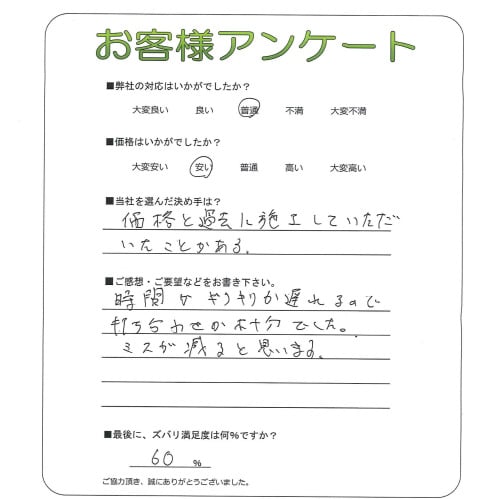 お客様アンケート
■弊社の対応はいかがでしたか？
大変良い 良い 普通 不満 大変不満
■価格はいかがでしたか？
大変安い 安い 普通 高い 大変高い
■当社を選んだ決め手は？
価格と過去に施工していただ
いたことがある。
■ご感想・ご要望などをお書き下さい。
時間が ギリギリか遅れるので
打ち合わせが 十分でした。
ミスが減ると思いまる。
■最後に、ズバリ満足度は何％ですか？
60 ％
ご協力頂き、誠にありがとうございました。